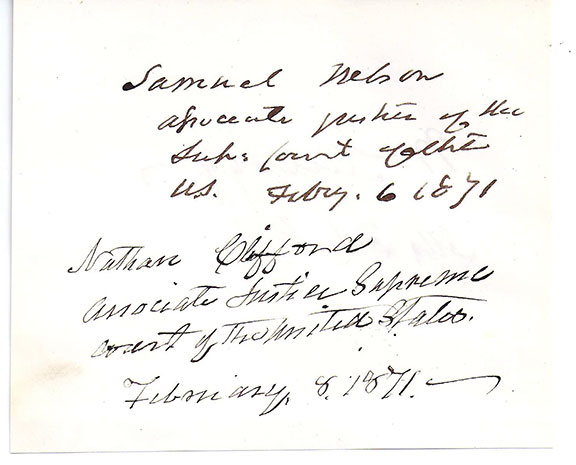 Samuel Nelson
associate justice of the
Sup: Court of the
U.S. Feby. 6 1871
Nathan Clifford
Associate Justice Supreme
Court of the United States.
February, 8. 1871.